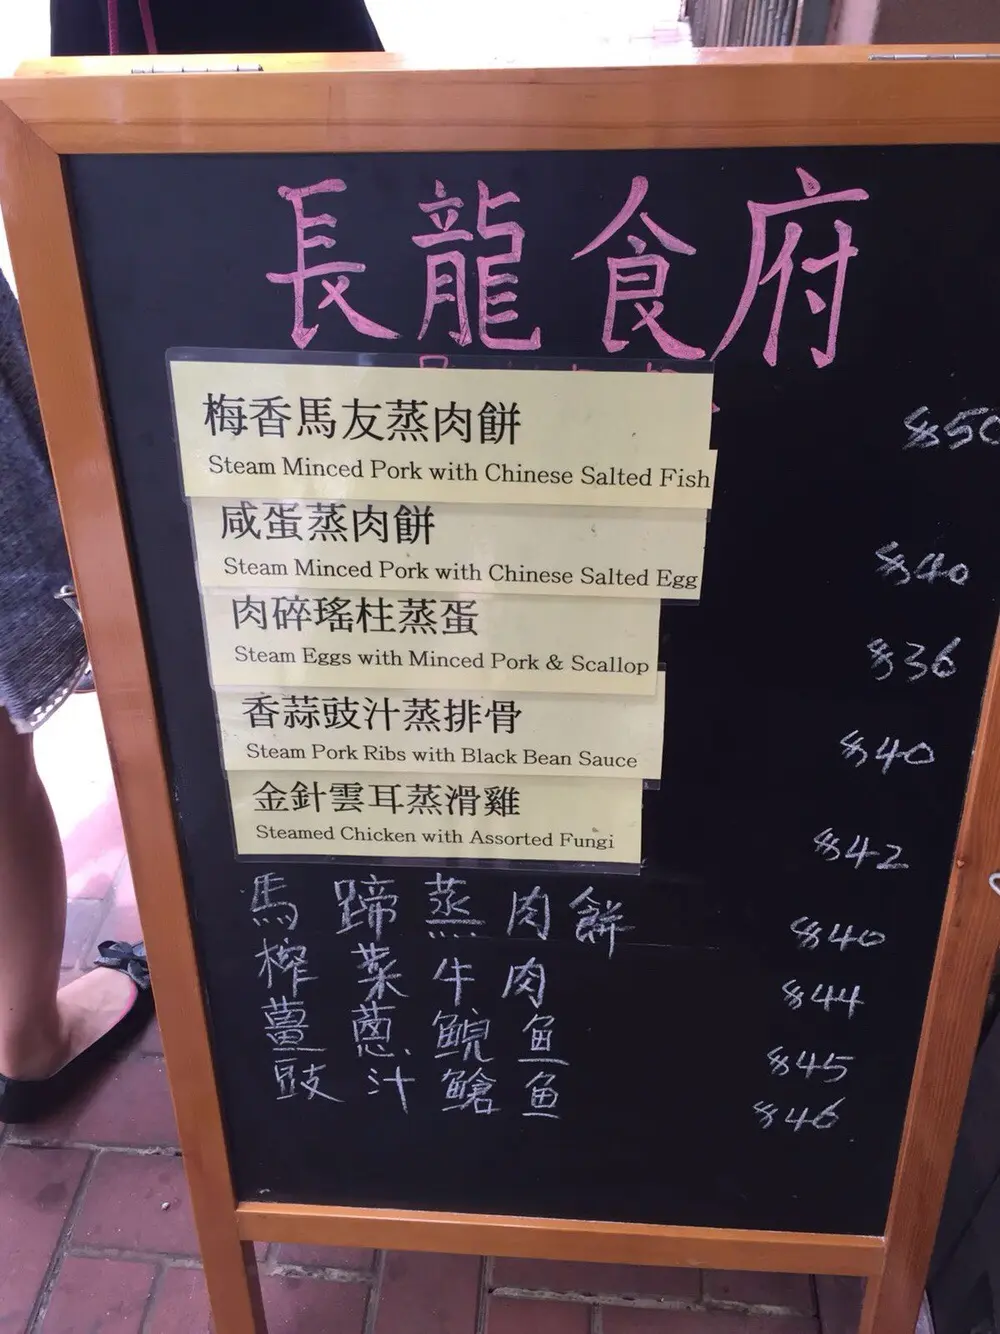 長龍食府
梅香馬友蒸肉餅 $50
Steam Minced Pork with Chinese Salted Fish
咸蛋蒸肉餅 $40
Steam Minced Pork with Chinese Salted Egg
肉碎瑤柱蒸蛋 $36
Steam Eggs with Minced Pork & Scallop
香蒜豉汁蒸排骨 $40
Steam Pork Ribs with Black Bean Sauce
金針雲耳蒸滑雞 $42
Steamed Chicken with Assorted Fungi
馬蹄蒸肉餅 $40
榨菜牛肉 $44
薑蔥鯇鱼 $45
豉汁鯧鱼 $46